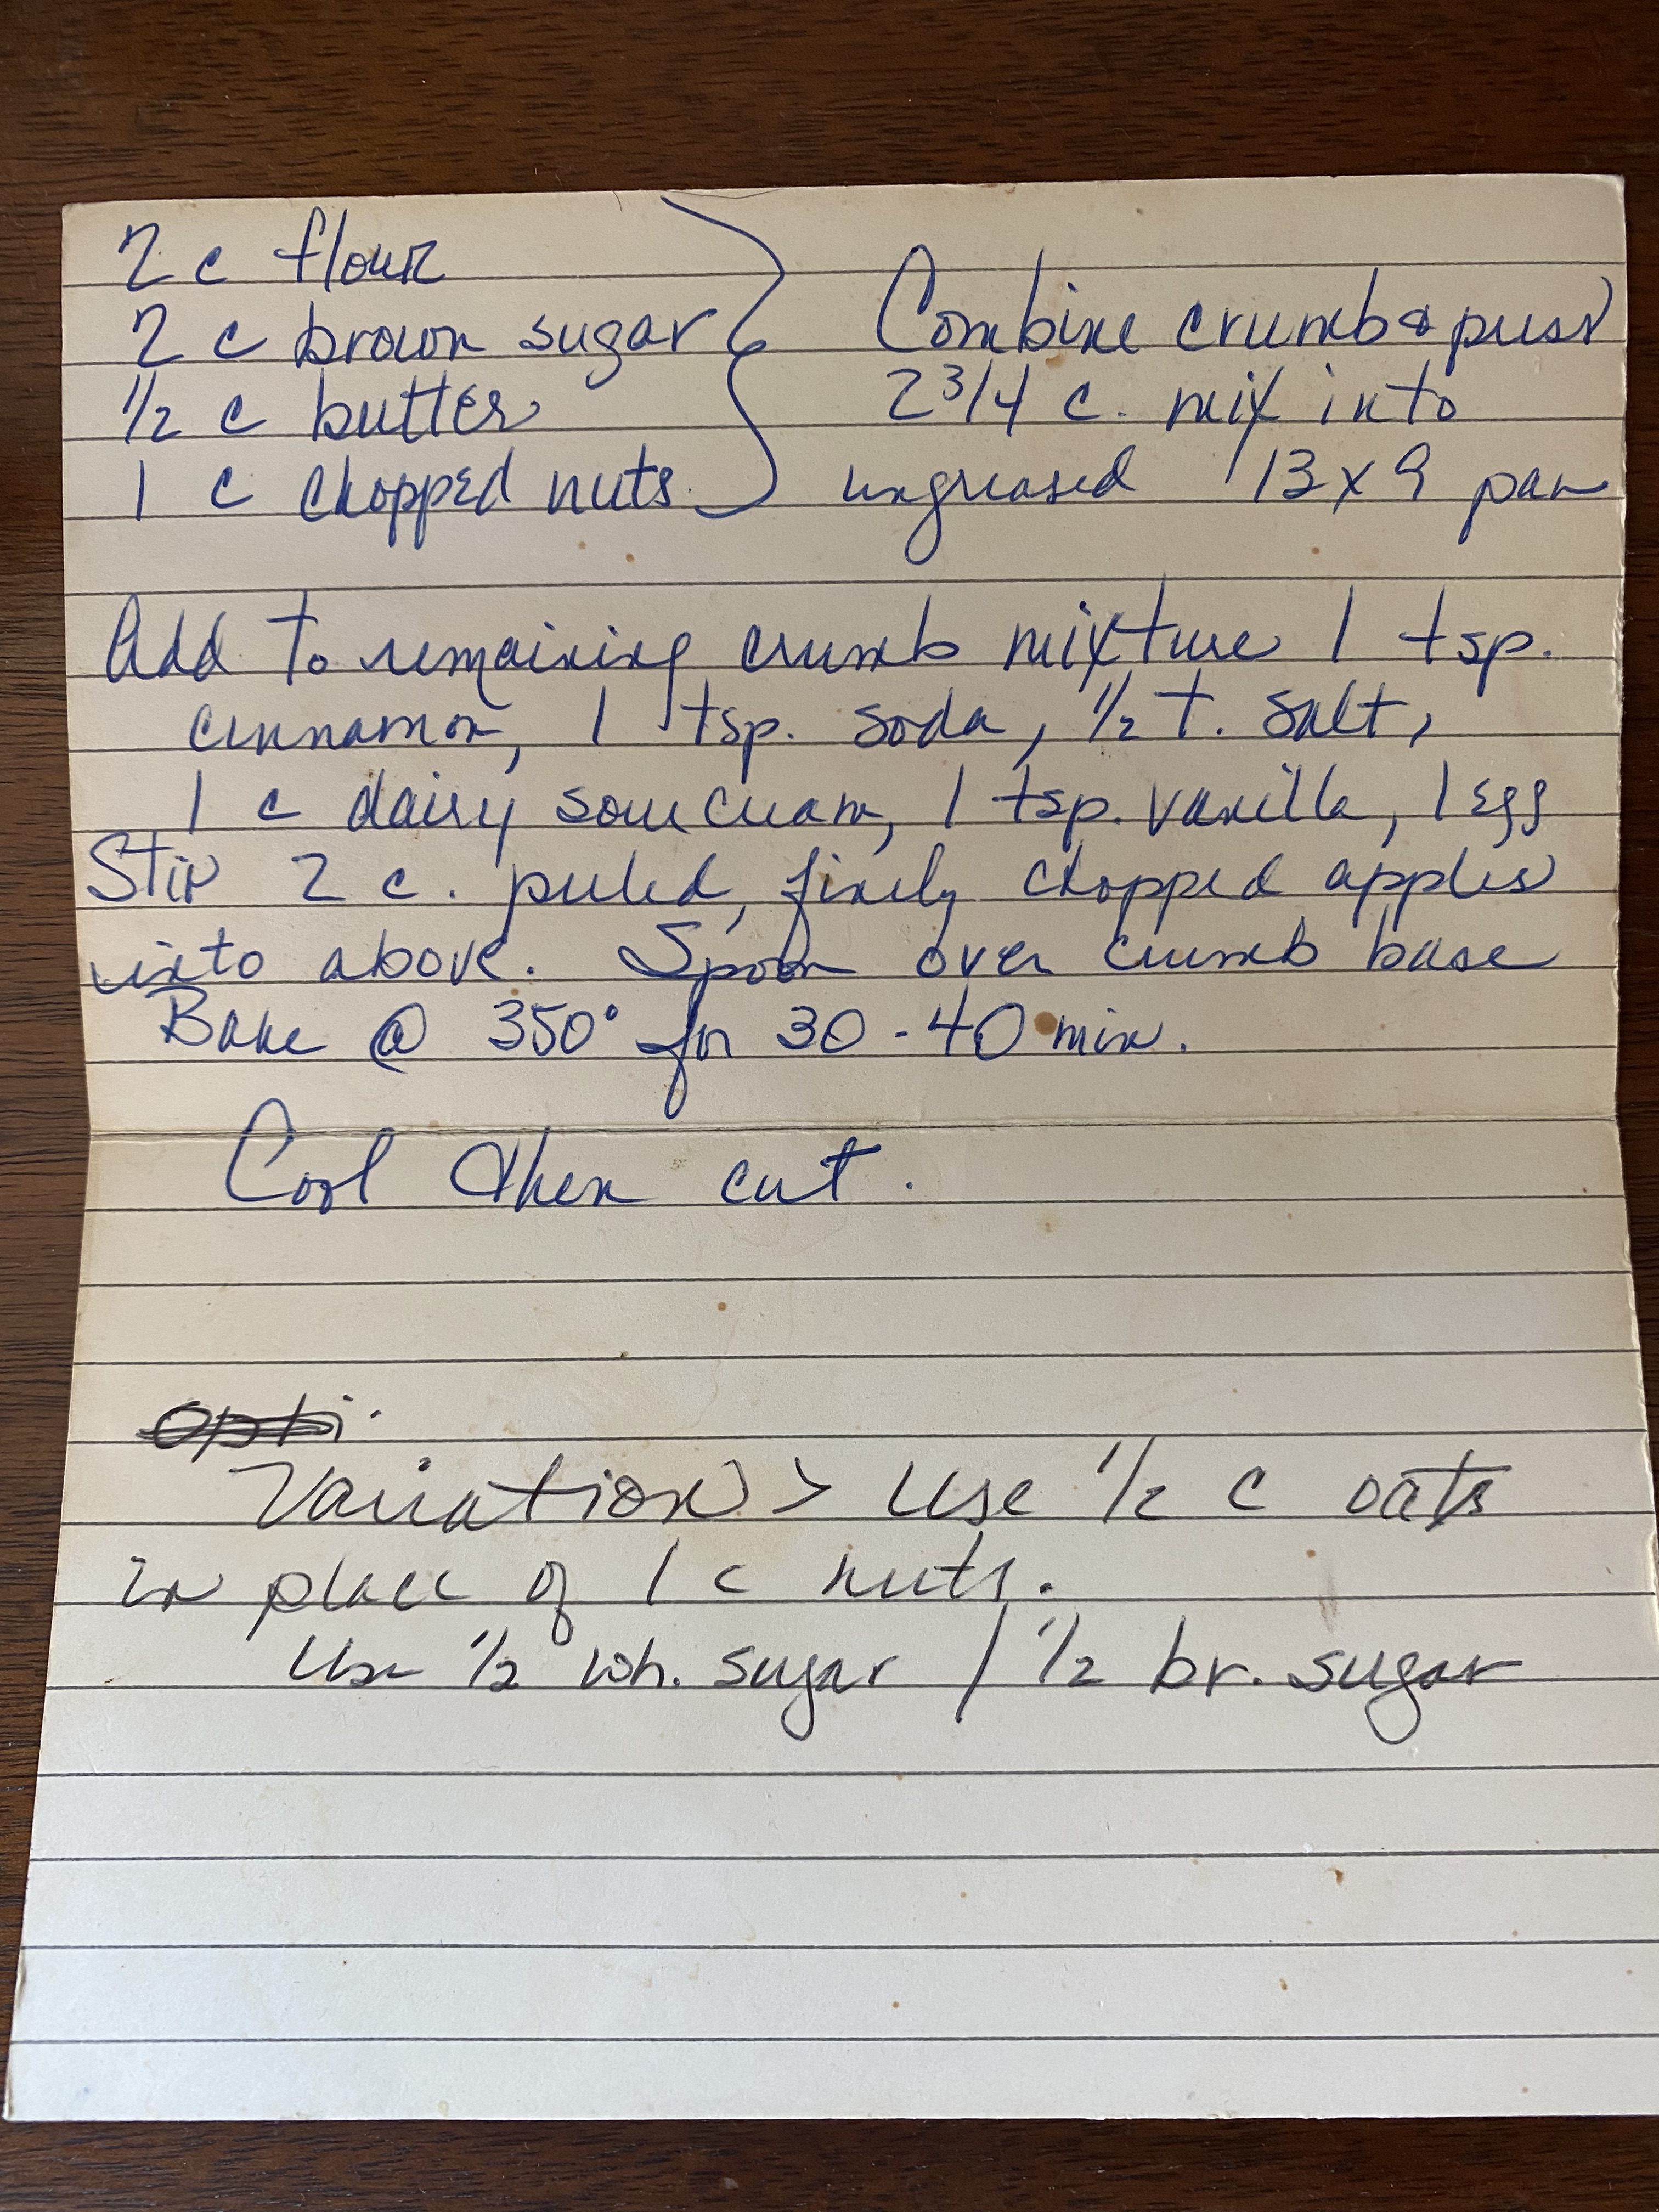 2 c flour
2 c brown sugar
1/2 c butter
1 c chopped nuts
Combine crumbs & press
2 3/4 c. mix into
ungreased 13 x 9 pan
Add to remaining crumb mixture 1 tsp.
cinnamon, 1 tsp. soda, 1/2 t. salt,
1 c dairy sour cream, 1 tsp. vanilla, 1 egg
Stir 2 c. peeled, finely chopped apples
into above. Spoon over crumb base
Bake @ 350° for 30-40 min.
Cool then cut.
Variation > Use 1/2 c oats
in place of 1 c nuts.
Use 1/2 wh. sugar / 1/2 br. sugar